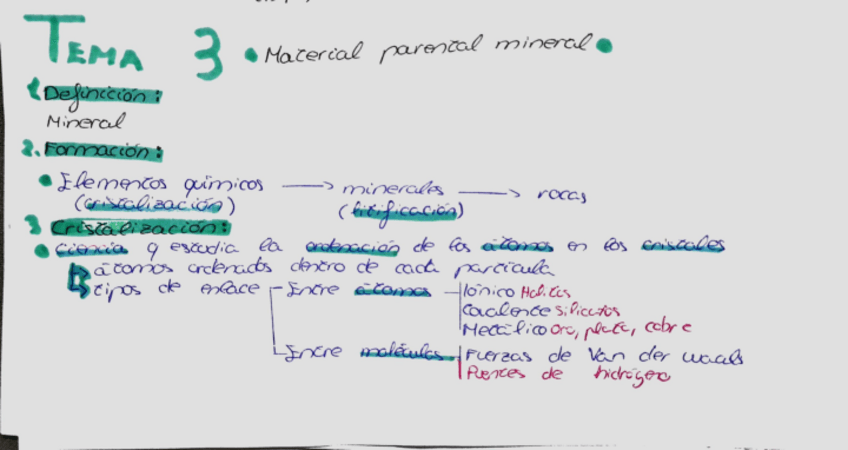 TEMA 3 • Material parental mineral •
1 Definición:
Mineral
2. Formación:
• Elementos químicos → minerales → rocas
(cristalización) (litificación)
3 Cristalización:
• Ciencia q estudia la ordenación de los átomos en los cristales
átomos ordenados dentro de cada partícula
tipos de enlace Entre átomos Iónico Halitas
Covalente silicatos
Metálico oro, plata, cobre
Entre moléculas Fuerzas de Van der waals
Puentes de hidrógeno